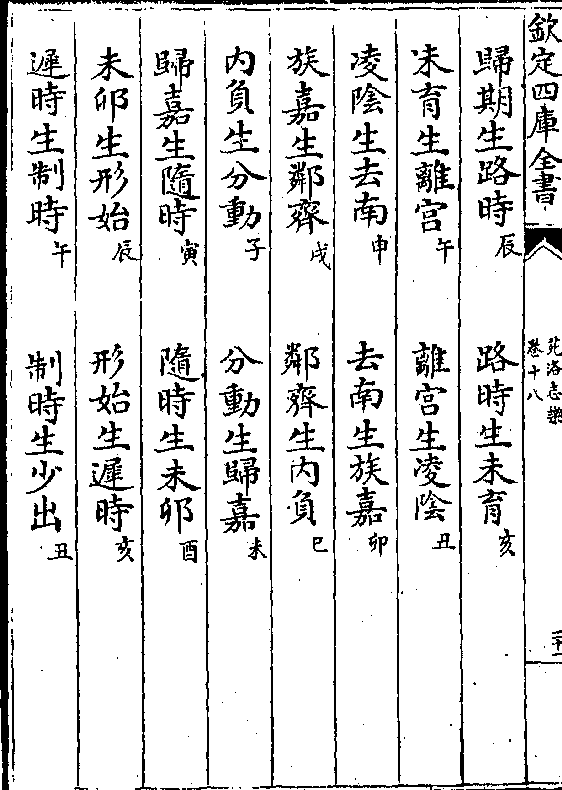 欽定四庫全書
苑洛志樂
卷十八
歸期生路時辰 路時生未育亥
未育生離宫午 離宫生凌陰丑
凌陰生去南申 去南生族嘉卯
族嘉生鄰齊戌 鄰齊生内負巳
内負生分動子 分動生歸嘉未
歸嘉生隨時寅 隨時生未卯酉
未卯生形始辰 形始生遲時亥
遲時生制時午 制時生少出丑